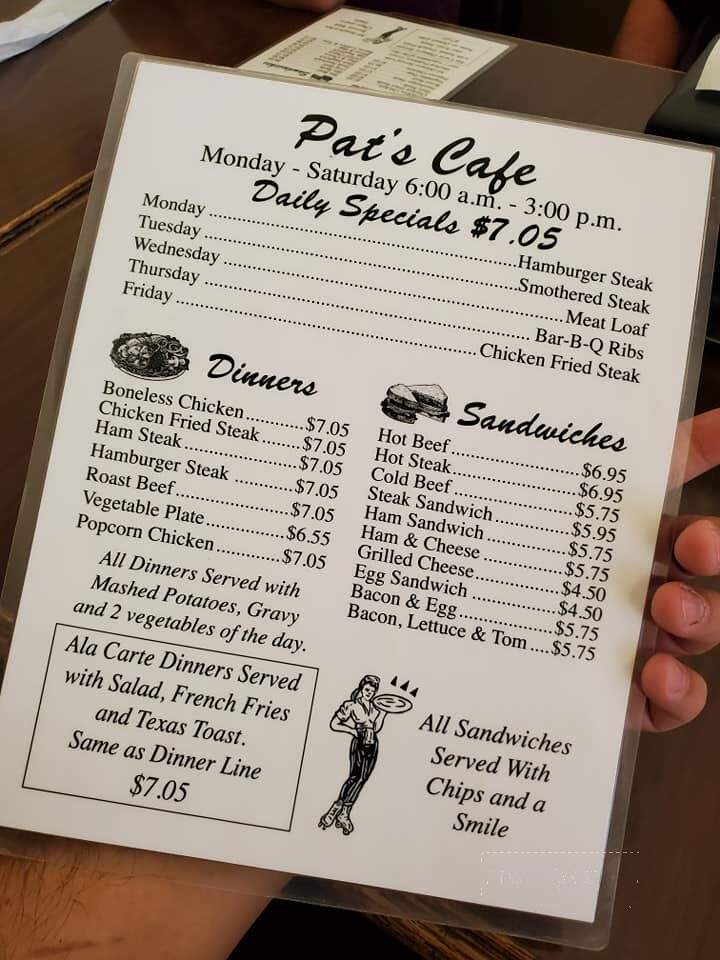 Pat's Cafe
Monday - Saturday 6:00 a.m. - 3:00 p.m.
Daily Specials $7.05
Monday Hamburger Steak
Tuesday Smothered Steak
Wednesday Meat Loaf
Thursday Bar-B-Q Ribs
Friday Chicken Fried Steak
Dinners
Boneless Chicken $7.05
Chicken Fried Steak $7.05
Ham Steak $7.05
Hamburger Steak $7.05
Roast Beef $7.05
Vegetable Plate $6.55
Popcorn Chicken $7.05
All Dinners Served with
Mashed Potatoes, Gravy
and 2 vegetables of the day.
Ala Carte Dinners Served
with Salad, French Fries
and Texas Toast.
Same as Dinner Line
$7.05
Sandwiches
Hot Beef $6.95
Hot Steak $6.95
Cold Beef $5.75
Steak Sandwich $5.95
Ham Sandwich $5.75
Ham & Cheese $5.75
Grilled Cheese $4.50
Egg Sandwich $4.50
Bacon & Egg $5.75
Bacon, Lettuce & Tom $5.75
All Sandwiches
Served With
Chips and a
Smile